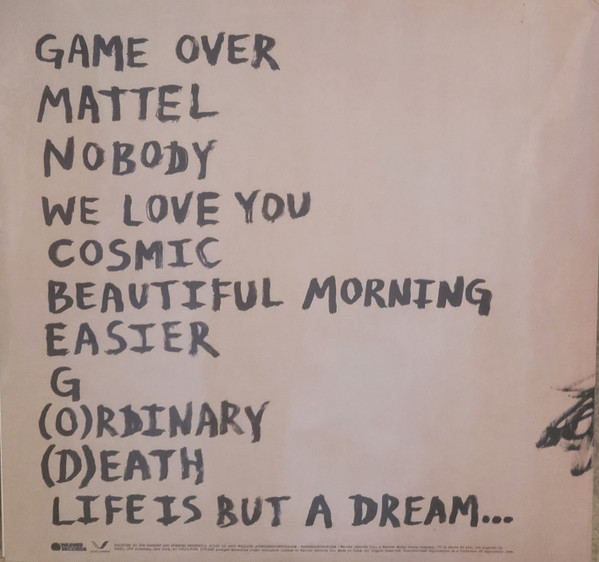 GAME OVER
MATTEL
NOBODY
WE LOVE YOU
COSMIC
BEAUTIFUL MORNING
EASIER
G
(O)RDINARY
(D)EATH
LIFE IS BUT A DREAM...
WARNER RECORDS